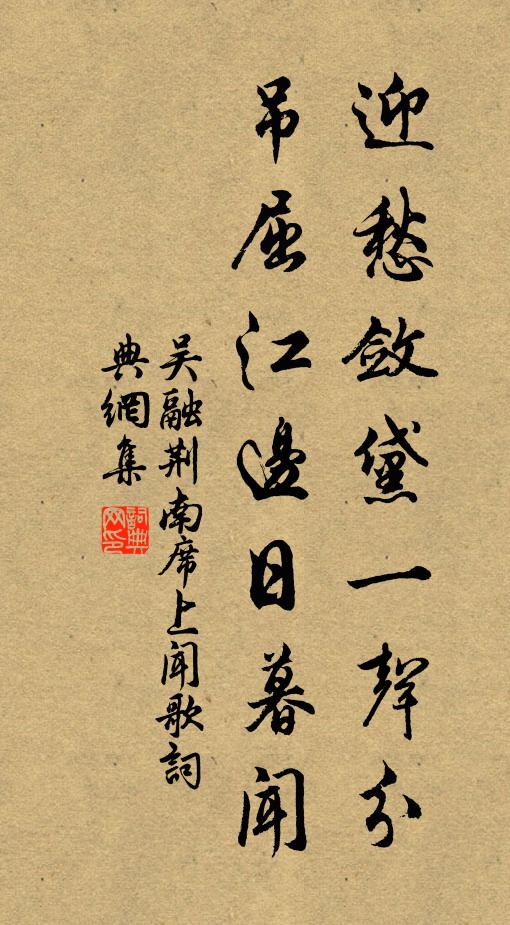 迎愁斂黛一聲分
吊屈江邊日暮聞
吴融荆南席上闻歌詞
典網集
詞典网印